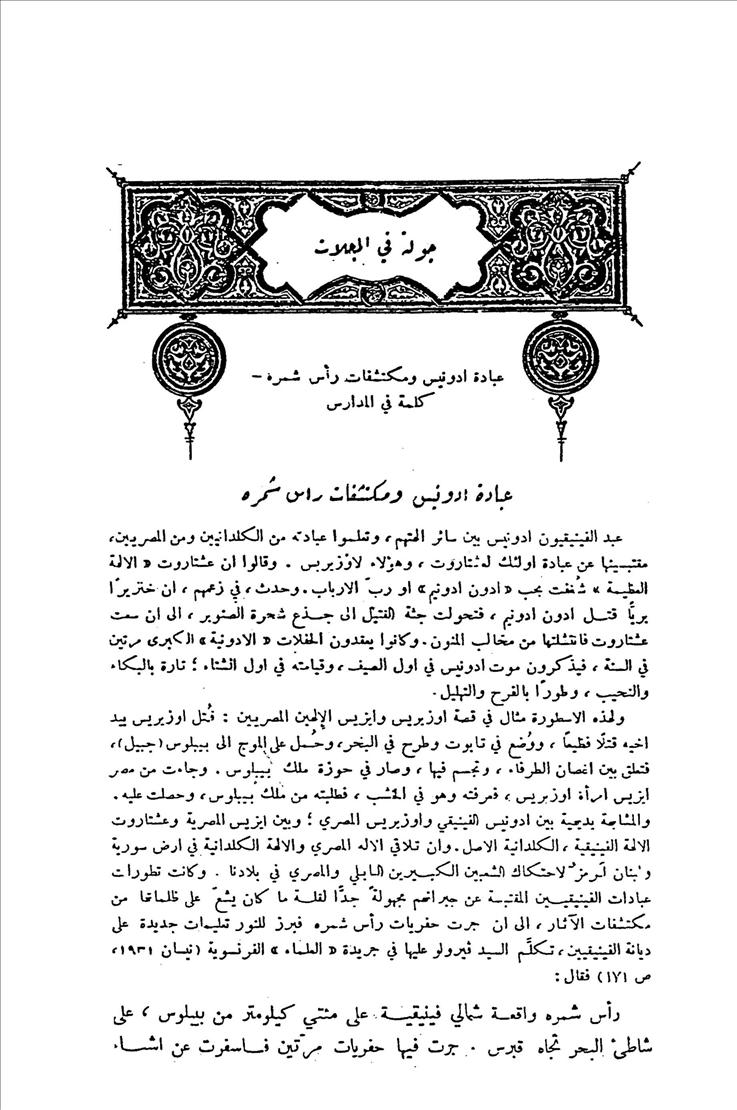 جولة في المجلات
عبادة ادونيس ومكتشفات رأس شمره –
كلمة في المدارس
عبادة ادونيس ومكتشفات راس شمره
عبد الفينيقيون ادونيس بين سائر آلهتهم، وتعلموا عبادته من الكلدانيين ومن المصريين،
مقتبسينها عن عبادة اولئك لعشتاروت، وهؤلاء لاوزيريس. وقالوا ان عشتاروت «الالهة
العظيمة» شُغفت بحب «ادون ادونيم» او ربّ الارباب. وحدث، في زعمهم، ان خنزيرًا
بريًّا قتـل ادون ادونيم، فتحولت جثة القتيل الى جـذع شجرة الصنوبر، الى ان سعت
عشتاروت فانتشلتها من مخالب المنون. وكانوا يعقدون الحفلات «الادونية» الكبرى مرتين
في السنة، فيذكرون موت ادونيس في اول الصيف، وقيامته في اول الشتاء؛ تارة بالبكاء
والنحيب، وطورًا بالفرح والتهليل.
ولهذه الاسطورة مثال في قصة اوزيريس وايزيس الإلهين المصريين: قُتل اوزيريس بيد
اخيه قتلًا فظيعًا، ووُضع في تابوت وطرح في البحر، وحُمل على الموج الى بيبلوس (جبيل)،
فتعلق بين اغصان الطرفاء، وتجسم فيها، وصار في حوزة ملك بيبلوس. وجاءت من مصر
ايزيس امرأة اوزيريس، فعرفته وهو في الخشب، فطلبته من ملك بيبلوس، وحصلت عليه.
والمشابهة بديهية بين ادونيس الفينيقي واوزيريس المصري؛ وبين ايزيس المصرية وعشتاروت
الالهة الفينيقية، الكلدانية الاصل. وان تلاقي الاله المصري والالهة الكلدانية في ارض سورية
ولبنان لَرمزٌ لاحتكاك الشعبين الكبيرين البابلي والمصري في بلادنا. وكانت تطورات
عبادات الفينيقيـين المقتبسة عن جيرانهم مجهولةً جدًّا لقلـة ما كان يشعّ على ظلماتها من
مكتشفات الآثار، الى ان جرت حفريات رأس شمره فبرز للنور تعليمات جديدة على
ديانة الفينيقيين، تكلَّم السيد ڤيرولو عليها في جريدة «العلماء» الفرنسوية (نيسان ١٩٣١،
ص ١٧١) فقال:
رأس شمره واقعـة شمالي فينيقيـة على مئتي كيلومتر من بيبلوس، على
شاطئ البحر تجاه قبرس. جرت فيها حفريات مرّتين فـاسفرت عن اشيـاء